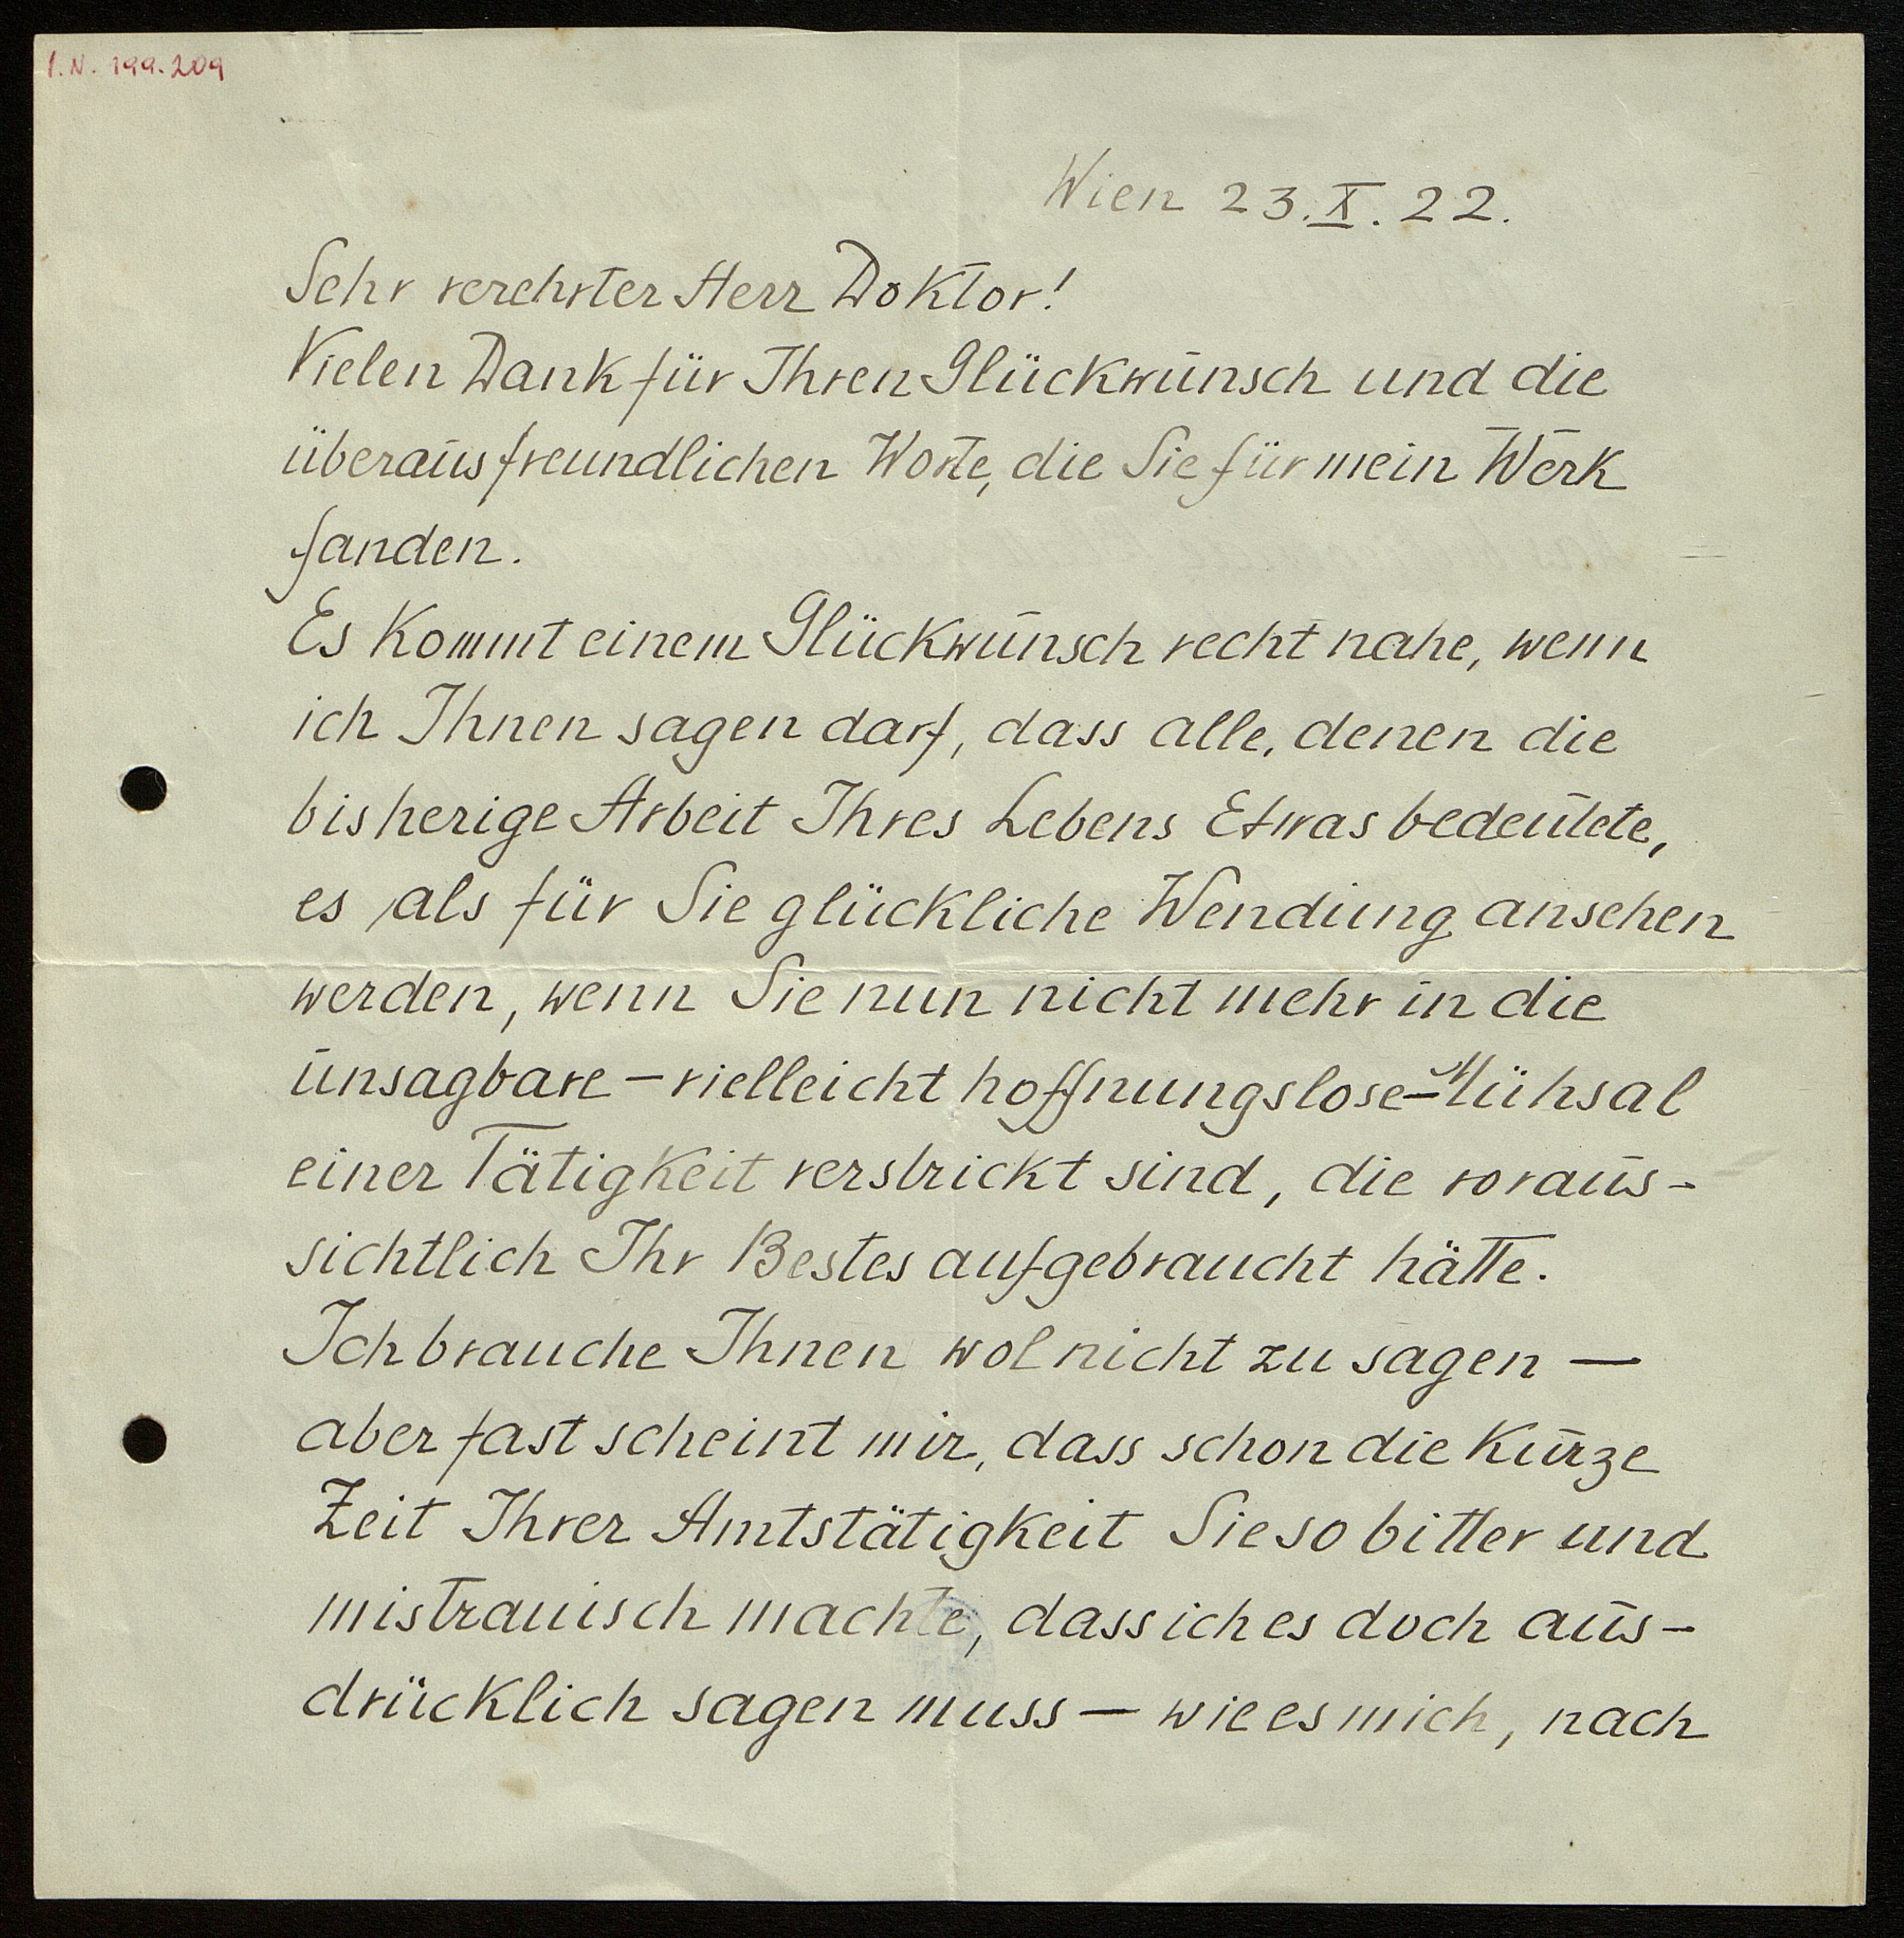 I.N. 199.209
Wien 23.X.22.
Sehr verehrter Herr Doktor!
Vielen Dank für Ihren Glückwunsch und die
überaus freundlichen Worte, die Sie für mein Werk
fanden.
Es kommt einem Glückwunsch recht nahe, wenn
ich Ihnen sagen darf, dass alle, denen die
bisherige Arbeit Ihres Lebens Etwas bedeutete,
es als für Sie glückliche Wendung ansehen
werden, wenn Sie nun nicht mehr in die
unsagbare – vielleicht hoffnungslose – Mühsal
einer Tätigkeit verstrickt sind, die voraus-
sichtlich Ihr Bestes aufgebraucht hätte.
Ich brauche Ihnen wol nicht zu sagen —
aber fast scheint mir, dass schon die kurze
Zeit Ihrer Amtstätigkeit Sie so bitter und
mistrauisch machte, dass ich es doch aus-
drücklich sagen muss — wie es mich, nach